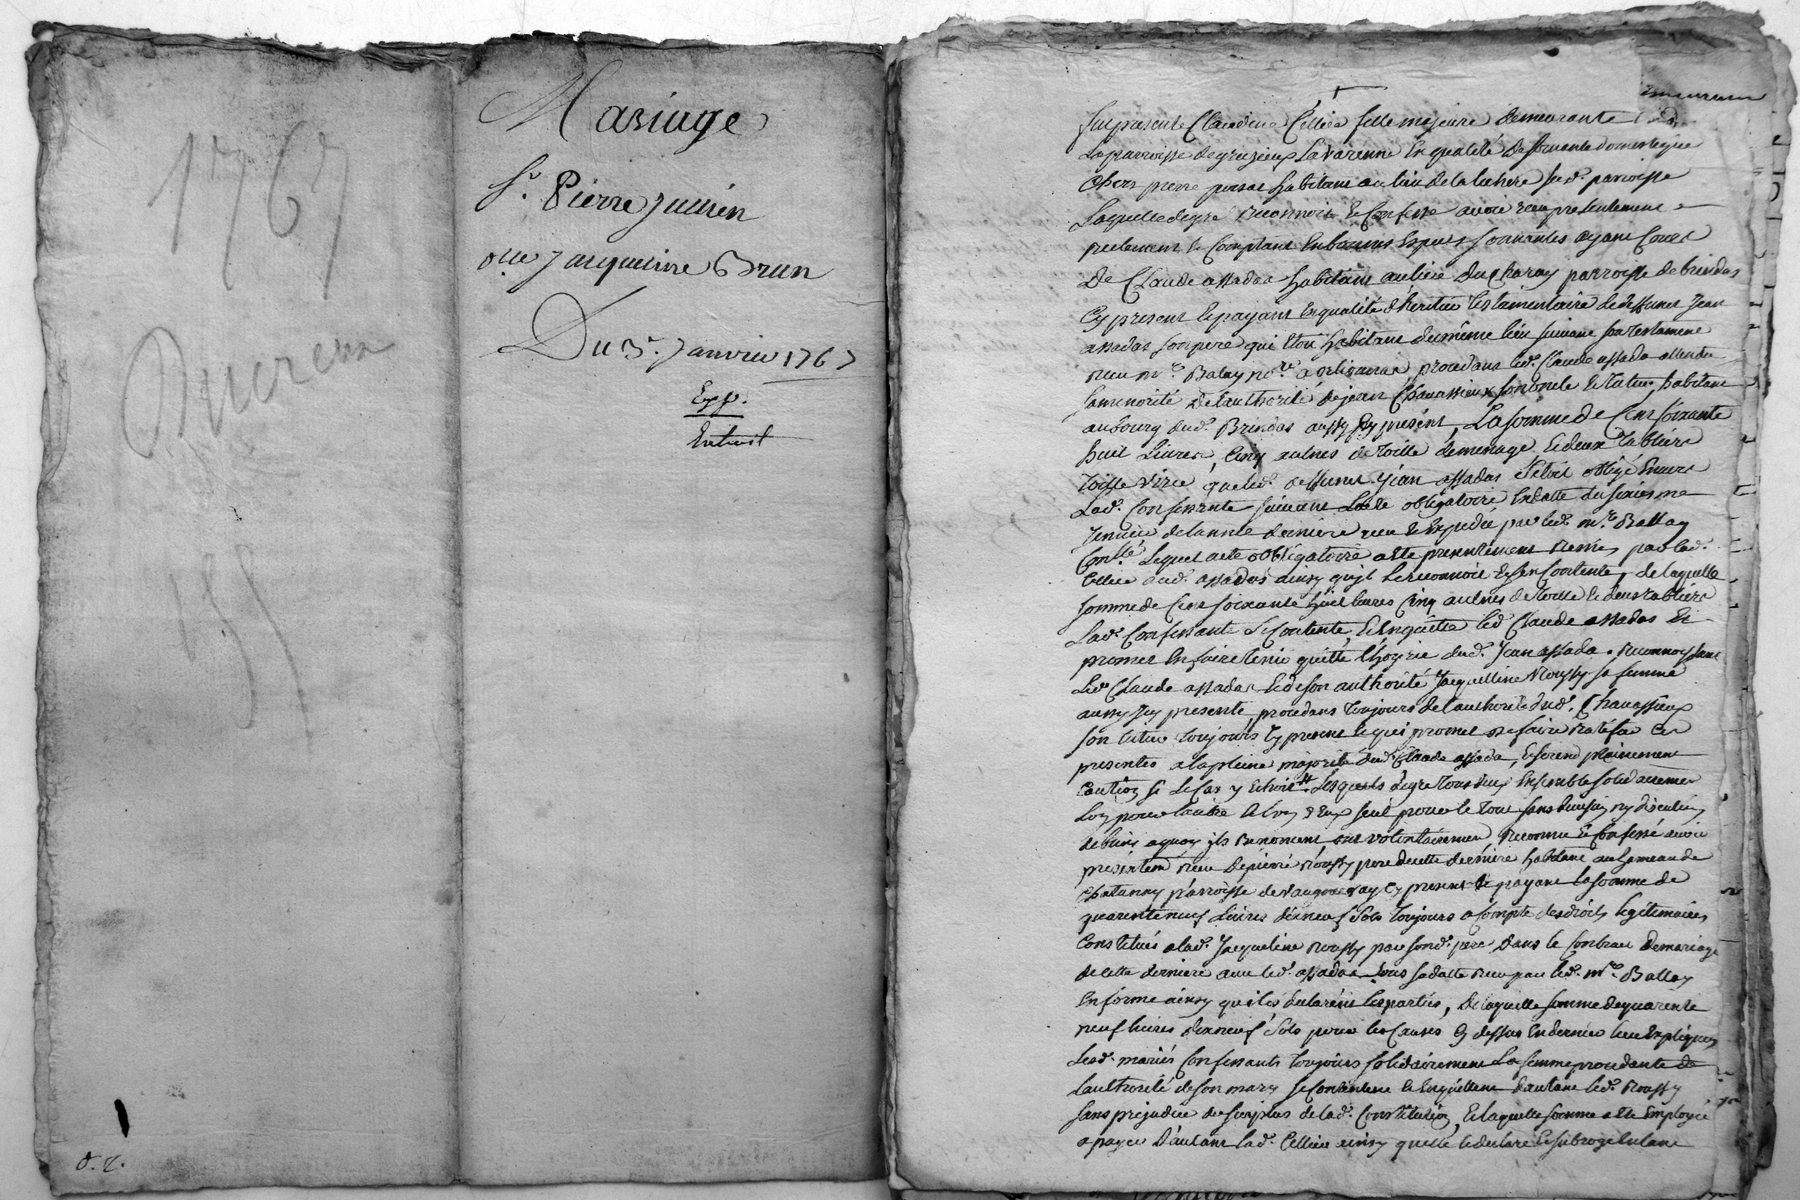 1767
155
Mariage
Sr. Pierre Jullien
Dlle Jacqueline Brun
Du 3e. Janvier 1767
Exp.
Extrait
d. r.
fut presente Claudine Cellier fille majeure demeurante
La parroisse de grezieux Lavarenne En qualité de servante domestique
Chez pierre habitant au lieu de la sud. parroisse
Laquelle de gré reconnoit & Confesse avoir reçu presentement
reelement & Comptant En bonnes Espees sonnantes ayant Cours
De Claude assada habitant au lieu du Charay parroisse de brindas
Cy present & payant En qualité d'heritier testamentaire de deffunt Jean
assadas son pere qui Etoit habitant du même lieu suivant son testament
reçu me. Balay nore. procedant led. Claude assada attendu
sa minorité de l'authorité de jean Chavassieux son oncle & tuteur habitant
au bourg dud. Brindas aussy Cy présent, La somme de Cent soixante
huit Livres, Cinq aulnes de toille de menage & deux tabliers
toille que led. deffunt Jean assadas s'Etoit obligé Envers
Lad. Confessante suivant obligatoire En datte du sixiesme
Janvier de l'année derniere reçu & Expedié par led. me. Ballay
Lequel acte obligatoire a Eté presentement remis par lad.
Cellier aud. assadas ainsy qu'il le reconnoit & s'en Contente, de laquelle
somme de Cent soixante huit livres Cinq aulnes de toille & deux tabliers
Lad. Confessante se Contente, & En quitte led. Claude assadas Et
promet En faire tenir quitte l'hoyrie dud. Jean assada. reconnoissant
Led. Claude assadas & de son authorité Jacquelline Roussy sa femme
aussy Icy presente, procedant toujours de l'authorité dud. Chavassieux
son tuteur toujours Cy present lequel promet de faire ratifier Ces
presentes a la pleine majorité dud. Claude assada, & se rend pleinement
Caution si le Cas y Echoit Lesquels de gré tous deux Ensemble solidairement
L'un pour l'autre & l'un d'Eux seul pour le tout sans division ny discution
de biens a quoy ils renoncent ont volontairement reconnu & Confessé avoir
presentem. reçu de pierre Roussy pere de cette derniere habitant au hameau de
Chatanay parroisse de Vaugneray Cy present & payant la somme de
quarente neuf Livres dixneuf sols toujours a Compte des droits legitimaires
Constitués a lad. Jacqueline Roussy par sond. pere dans le Contrat de mariage
de cette derniere avec led. assadas sous sa datte reçu par led. me. Ballay
En forme ainsy que le declarent les parties, de laquelle somme de quarente
neuf livres dixneuf sols pour les Causes Cy dessus En dernier lieu Expliquées
Lesd. mariés Confessants toujours solidairement La femme procedante de
l'authorité de son mary se Contentent & En quittent d'autant led. Roussy
sans prejudice du surplus de lad. Constitution, & laquelle somme a Eté Employée
a payer d'autant lad. Cellier ainsy qu'elle le declare & subroge